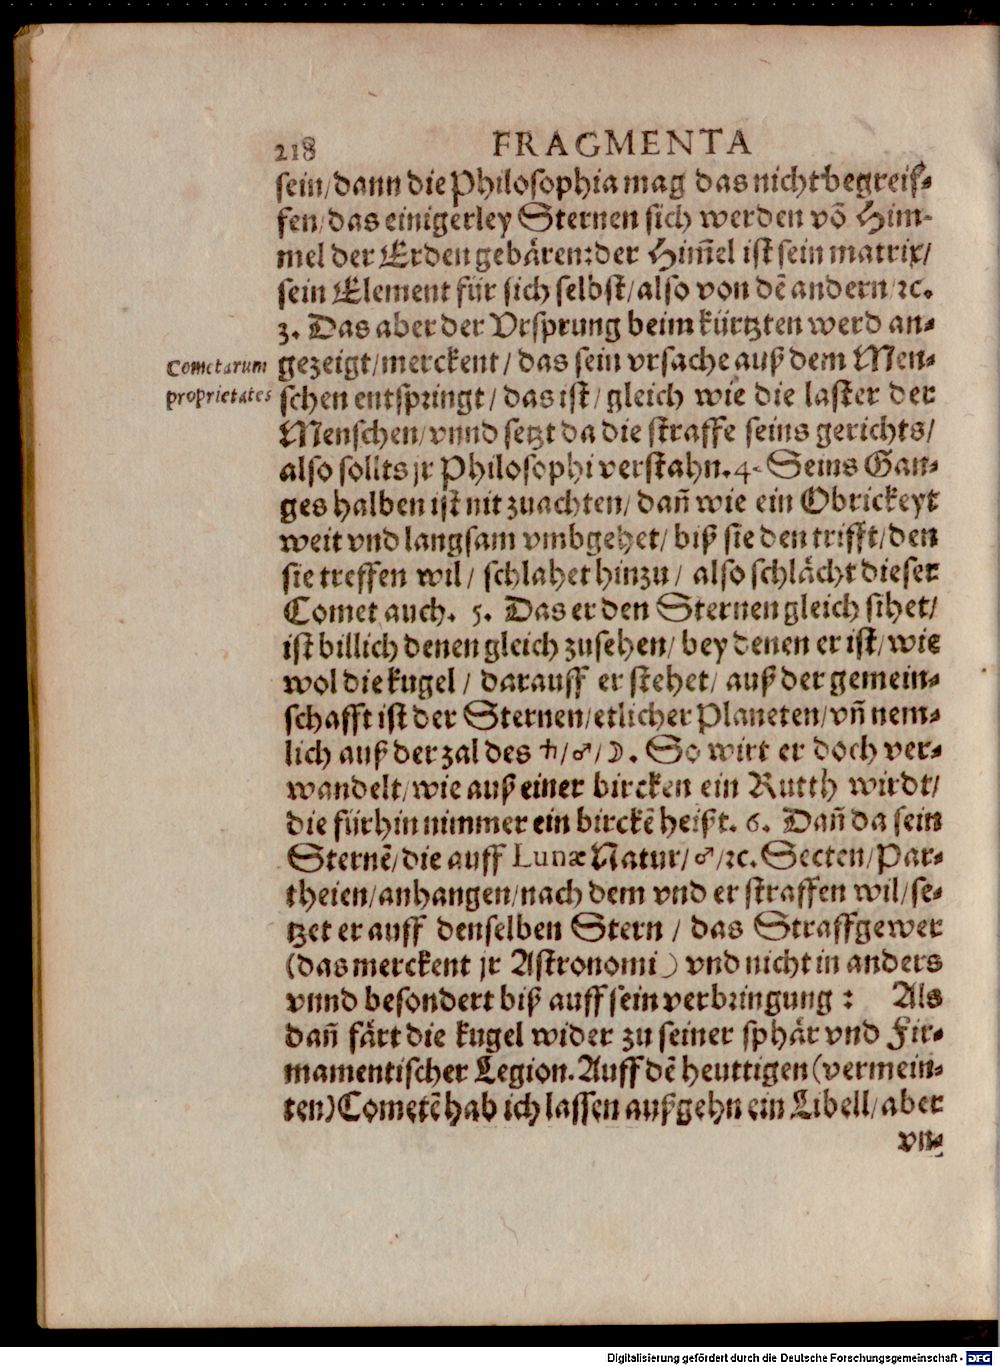 218 FRAGMENTA
sein/dann die Philosophia mag das nicht begreif-
fen/das einigerley Sternen sich werden võ Him-
mel der Erden gebären: der Him̃el ist sein matrix/
sein Element für sich selbst/also von dẽ andern/ꝛc.
3. Das aber der Vrsprung beim kürtzten werd an-
Cometarum
gezeigt/merckent/das sein vrsache auß dem Men-
proprietates
schen entspringt/das ist/gleich wie die laster der
Menschen/vnnd setzt da die straffe seins gerichts/
also sollts jr Philosophi verstahn. 4. Seins Gan-
ges halben ist nit zuachten/dañ wie ein Obrickeyt
weit vnd langsam vmbgehet/biß sie den trifft/den
sie treffen wil/schlahet hinzu/also schlächt dieser
Comet auch. 5. Das er den Sternen gleich sihet/
ist billich denen gleich zusehen/bey denen er ist/wie
wol die kugel/darauff er stehet/auß der gemein-
schafft ist der Sternen/etlicher Planeten/vñ nem-
lich auß der zal des ♄/♂/☽. So wirt er doch ver-
wandelt/wie auß einer bircken ein Rutth wirdt/
die fürhin nimmer ein birckẽ heißt. 6. Dañ da sein
Sternẽ/die auff Lunæ Natur/♂/ꝛc. Secten/Par-
theien/anhangen/nach dem vnd er straffen wil/se-
tzet er auff denselben Stern/das Straffgewer
(das merckent jr Astronomi) vnd nicht in anders
vnnd besondert biß auff sein verbringung: Als
dañ färt die kugel wider zu seiner sphär vnd Fir-
mamentischer Legion. Auff dẽ heuttigen (vermein-
ten) Cometẽ hab ich lassen außgehn ein Libell/aber
vn-
Digitalisierung gefördert durch die Deutsche Forschungsgemeinschaft - DFG